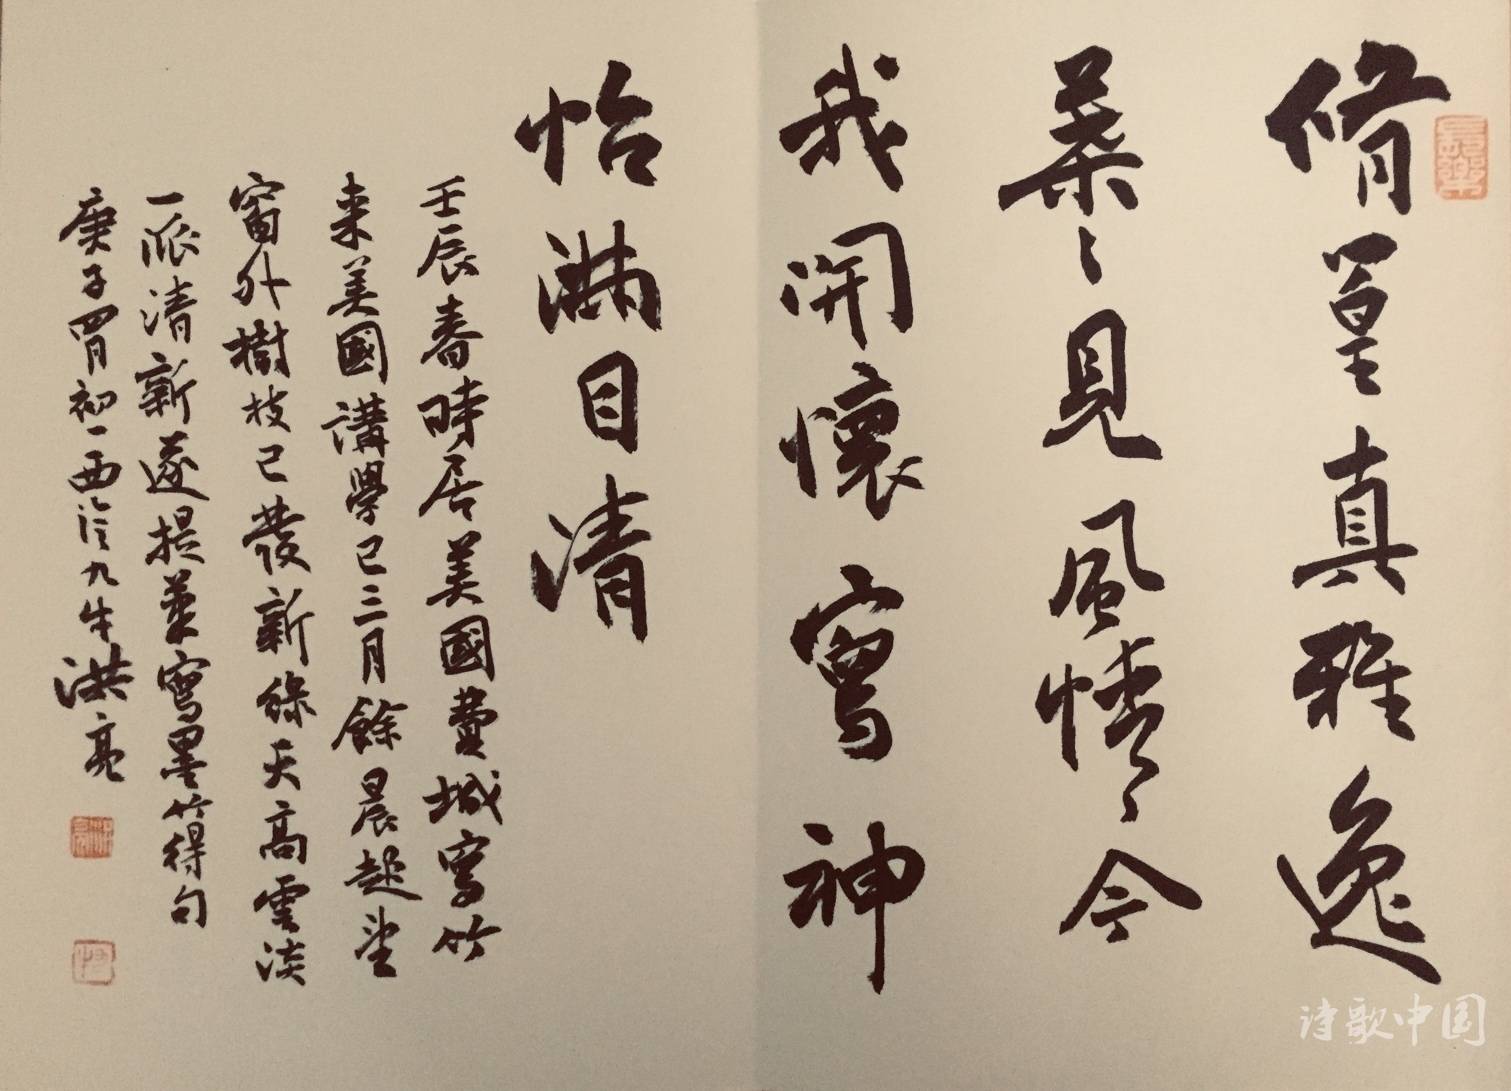 脩篁真雅逸
葉〻見風情〻今
我開懷寫神
怡滿目清
壬辰春時居美國費城寫竹
来美國講學已三月餘晨起望
窗外樹枝已發新綠天高雲淡
一派清新遂提筆寫墨竹得句
庚子四月初一西泠九牛洪亮
诗歌中国